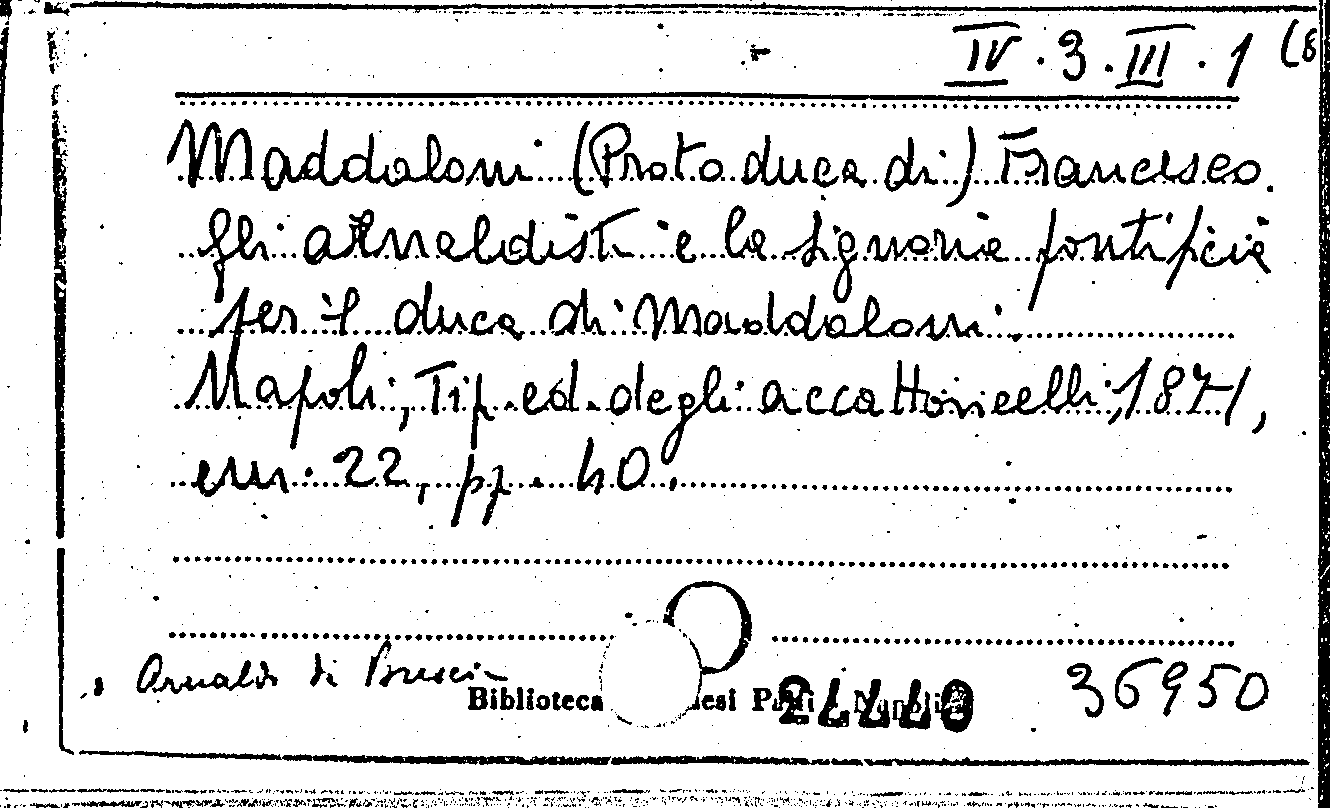 IV.3.III.1 (8
Maddaloni (Proto duca di) Francesco.
Gli arnaldisti e la signoria pontificia
per il duca di Maddaloni.
Napoli, Tip. ed. degli accattoncelli, 1871,
cm. 22, pp. 40.
Arnaldo di Brescia
Biblioteca
36950